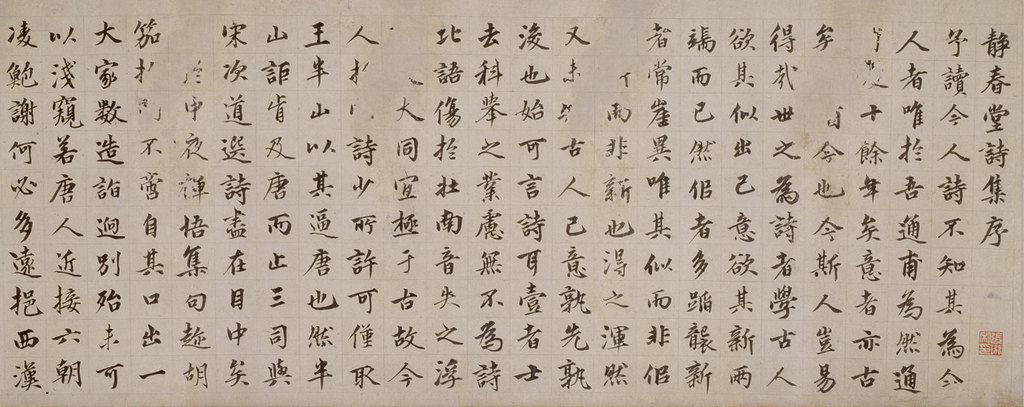 静春堂詩集序
予讀今人詩不知其為今
人者唯於吾通甫為然通
十餘年矣意者亦古
矣今也今斯人豈易
得哉世之為詩者學古人
欲其似出己意欲其新兩
端而已然佀者多蹈襲新
者常崖異唯其似而非佀
而非新也淂之渾然
又未古人己意孰先孰
後也始可言詩耳壹者士
去科舉之業慮無不為詩
北語傷於壯南音失之浮
大同宜極于古故今
人詩少所許可僅取
王半山以其逼唐也然半
山詎肯及唐而止三司與
宋次道選詩盡在目中矣
中夜禪悟集句趂胡
笳不啻自其口出一
大家數造詣迥別殆未可
以淺窺若唐人近接六朝
凌鮑謝何必多遠挹西漢